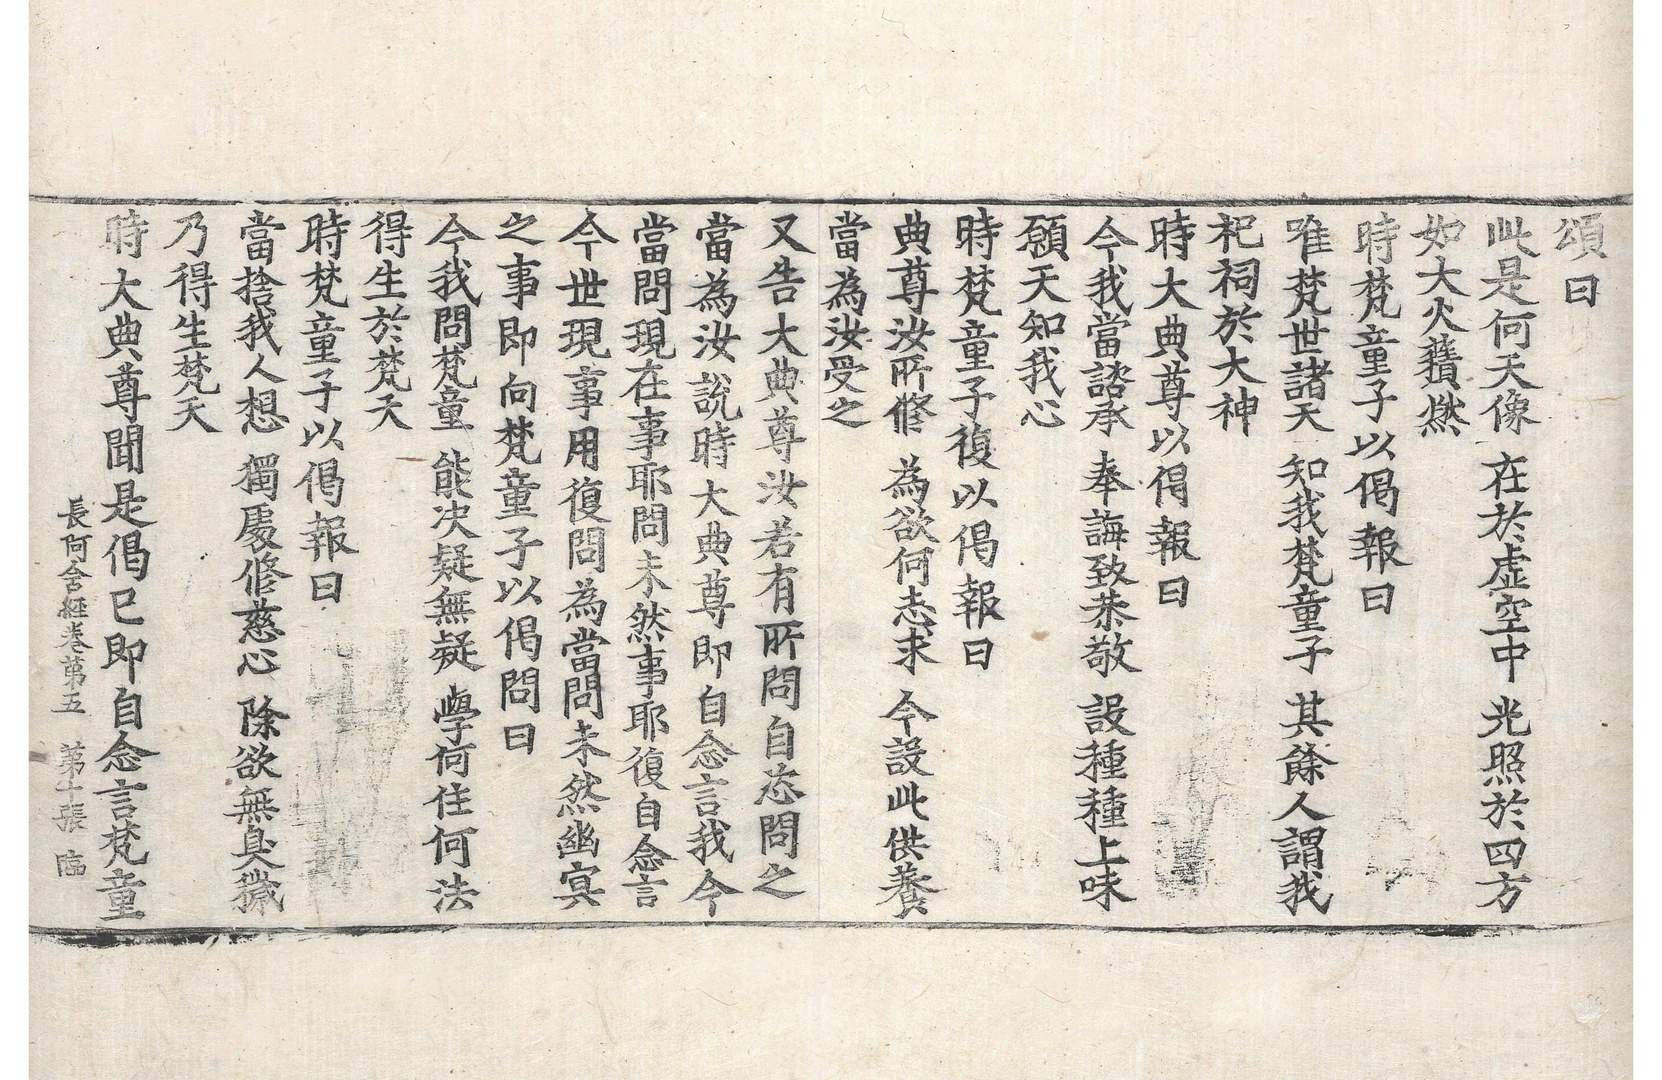 頌曰
此是何天像 在於虛空中 光照於四方
如大火𧂐燃
時梵童子以偈報曰
唯梵世諸天 知我梵童子 其餘人謂我
祀祠於大神
時大典尊以偈報曰
今我當諮承 奉誨致恭敬 設種種上味
願天知我心
時梵童子復以偈報曰
典尊汝所修 為欲何志求 今設此供養
當為汝受之
又告大典尊汝若有所問自恣問之
當為汝說時大典尊即自念言我今
當問現在事耶問未然事耶復自念言
今世現事用復問為當問未然幽冥
之事即向梵童子以偈問曰
今我問梵童 能決疑無疑 學何住何法
得生於梵天
時梵童子以偈報曰
當捨我人想 獨處修慈心 除欲無臭穢
乃得生梵天
時大典尊聞是偈已即自念言梵童
長阿含經卷第五 第十張 臨